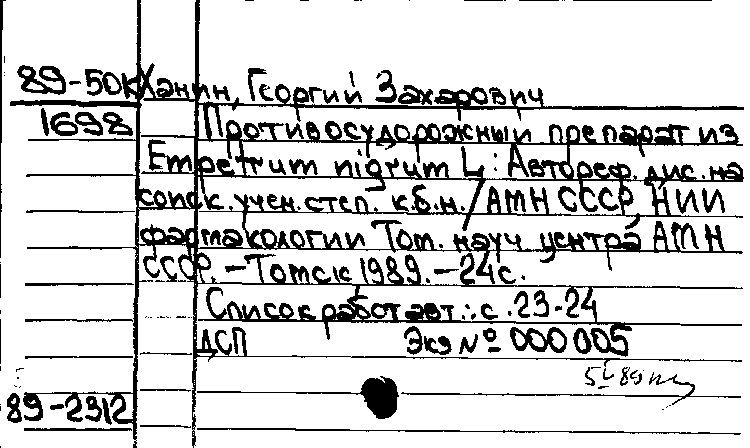 89-50к Ханин, Георгий Захарович
1698 Противосудорожный препарат из
Empetrum nigrum L.: Автореф. дис. на
соиск. учен. степ. к.б.н. / АМН СССР, НИИ
фармакологии Том. науч центра АМН
СССР. - Томск 1989. - 24 с.
Список работ авт.: с. 23-24
ДСП Экз № 000005
89-2312